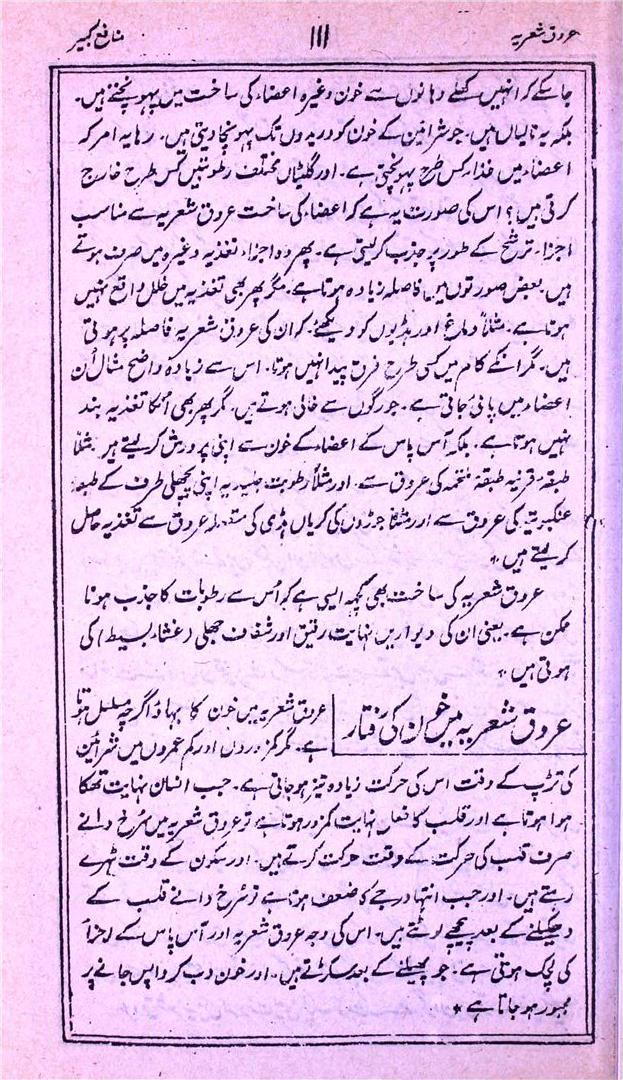 عروق شعریہ ۱۱۱ منافع کبیر
جاسکے کہ انہیں کھلے دہانوں سے خون وغیرہ اعضاء کی ساخت میں پہونچتے ہیں۔
بلکہ یہ نالیاں ہیں۔ جو شرائین کے خون کو وریدوں تک پہونچا دیتی ہیں۔ رہا یہ امر کہ
اعضاء میں غذا کس طرح پہونچتی ہے۔ اور گلٹیاں مختلف رطوبتیں کس طرح خارج
کرتی ہیں؟ اس کی صورت یہ ہے کہ اعضاء کی ساخت عروق شعریہ سے مناسب
اجزاء ترشح کے طور پر جذب کر لیتی ہے۔ پھر وہ اجزاء تغذیہ وغیرہ میں صرف ہوتے
ہیں۔ بعض صورتوں میں فاصلہ زیادہ ہوتا ہے۔ مگر پھر بھی تغذیہ میں خلل واقع نہیں
ہوتا ہے۔ مثلاً دماغ اور ہڈیوں کو دیکھئے۔ کہ ان کی عروق شعریہ فاصلہ پر ہوتی
ہیں۔ مگر انکے کام میں کسی طرح فرق پیدا نہیں ہوتا۔ اس سے زیادہ واضح مثال اُن
اعضاء میں پائی جاتی ہے۔ جو رگوں سے خالی ہوتے ہیں۔ مگر پھر بھی انکا تغذیہ بند
نہیں ہوتا ہے۔ بلکہ آس پاس کے اعضاء کے خون سے اپنی پرورش کر لیتے ہیں۔ مثلاً
طبقہ قرنیہ طبقہ ملتحمہ کی عروق سے۔ اور مثلاً رطوبت جلیدیہ اپنی پچھلی طرف کے طبقہ
عنکبوتیہ کی عروق سے اور مثلاً جوڑوں کی کریاں ہڈی کی متصلہ عروق سے تغذیہ حاصل
کر لیتے ہیں۔
عروق شعریہ کی ساخت بھی کچھ ایسی ہے کہ اُس سے رطوبات کا جذب ہونا
ممکن ہے۔ یعنی ان کی دیواریں نہایت رقیق اور شفاف جھلی (غشاء بسیط) کی
ہوتی ہیں۔
عروق شعریہ میں خون کی رفتار
عروق شعریہ میں خون کا بہاؤ اگرچہ مسلسل ہوتا
ہے۔ مگر کمزوروں اور کم عمروں میں شرائین
کی تڑپ کے وقت اس کی حرکت زیادہ تیز ہو جاتی ہے۔ جب انسان نہایت تھکا
ہوا ہوتا ہے اور قلب کا فعل نہایت کمزور ہوتا ہے تو عروق شعریہ میں سُرخ دانے
صرف قلب کی حرکت کے وقت حرکت کرتے ہیں۔ اور سکون کے وقت ٹہرے
رہتے ہیں۔ اور جب انتہا درجے کا ضعف ہوتا ہے تو سُرخ دانے قلب کے
دھکیلنے کے بعد پیچھے لوٹتے ہیں۔ اس کی وجہ عروق شعریہ اور آس پاس کے اجزاء
کی لچک ہوتی ہے۔ جو پھیلنے کے بعد سکڑتے ہیں۔ اور خون دب کر واپس جانے پر
مجبور ہو جاتا ہے *